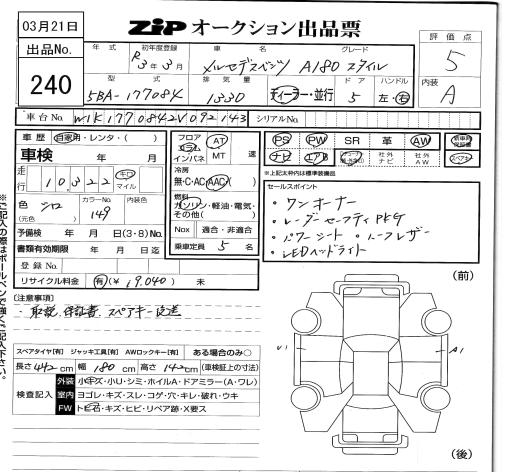 03月21日
ZIP オークション出品票
出品No.
240
評価点
5
内装
A
年式 初年度登録 車名 グレード
R3年3月 メルセデスベンツ A180 スタイル
型式 排気量 ドア ハンドル
5BA-177084 1330 ディーラー・並行 5 左・右
車台No. W1K1770842V092143 シリアルNo.
車歴 自家用・レンタ・( )
車検 年 月
走行 10,322 キロ マイル
色 シロ (元色) カラーNo. 149 内装色
予備検 年 月 日(3・8)No.
書類有効期限 年 月 日迄
登録No.
リサイクル料金 有(¥19,040) 未
フロア コラム インパネ AT MT 速
冷房 無・C・AC・AAC( )
燃料 ガソリン・軽油・電気・その他( )
Nox 適合・非適合
乗車定員 5 名
PS PW SR 革 AW
ナビ エアB 社外ナビ 社外AW
スペアキー
※上記太枠内は標準装備品
セールスポイント
・ワンオーナー
・レーダーセーフティPKG
・パワーシート ・ハーフレザー
・LEDヘッドライト
[注意事項]
・取説、保証書、スペアキー後送
スペアタイヤ[有] ジャッキ工具[有] AWロックキー[有] ある場合のみ○
長さ442cm 幅180cm 高さ142cm (車検証上の寸法)
検査記入
外装 小キズ・小U・シミ・ホイルA・ドアミラー(A・ワレ)
室内 ヨゴレ・キズ・スレ・コゲ・穴・キレ・破れ・ウキ
FW トビ石・キズ・ヒビ・リペア跡・X要ス
(前)
U1
A1
(後)
※ご記入の際はボールペンで強くご記入下さい。